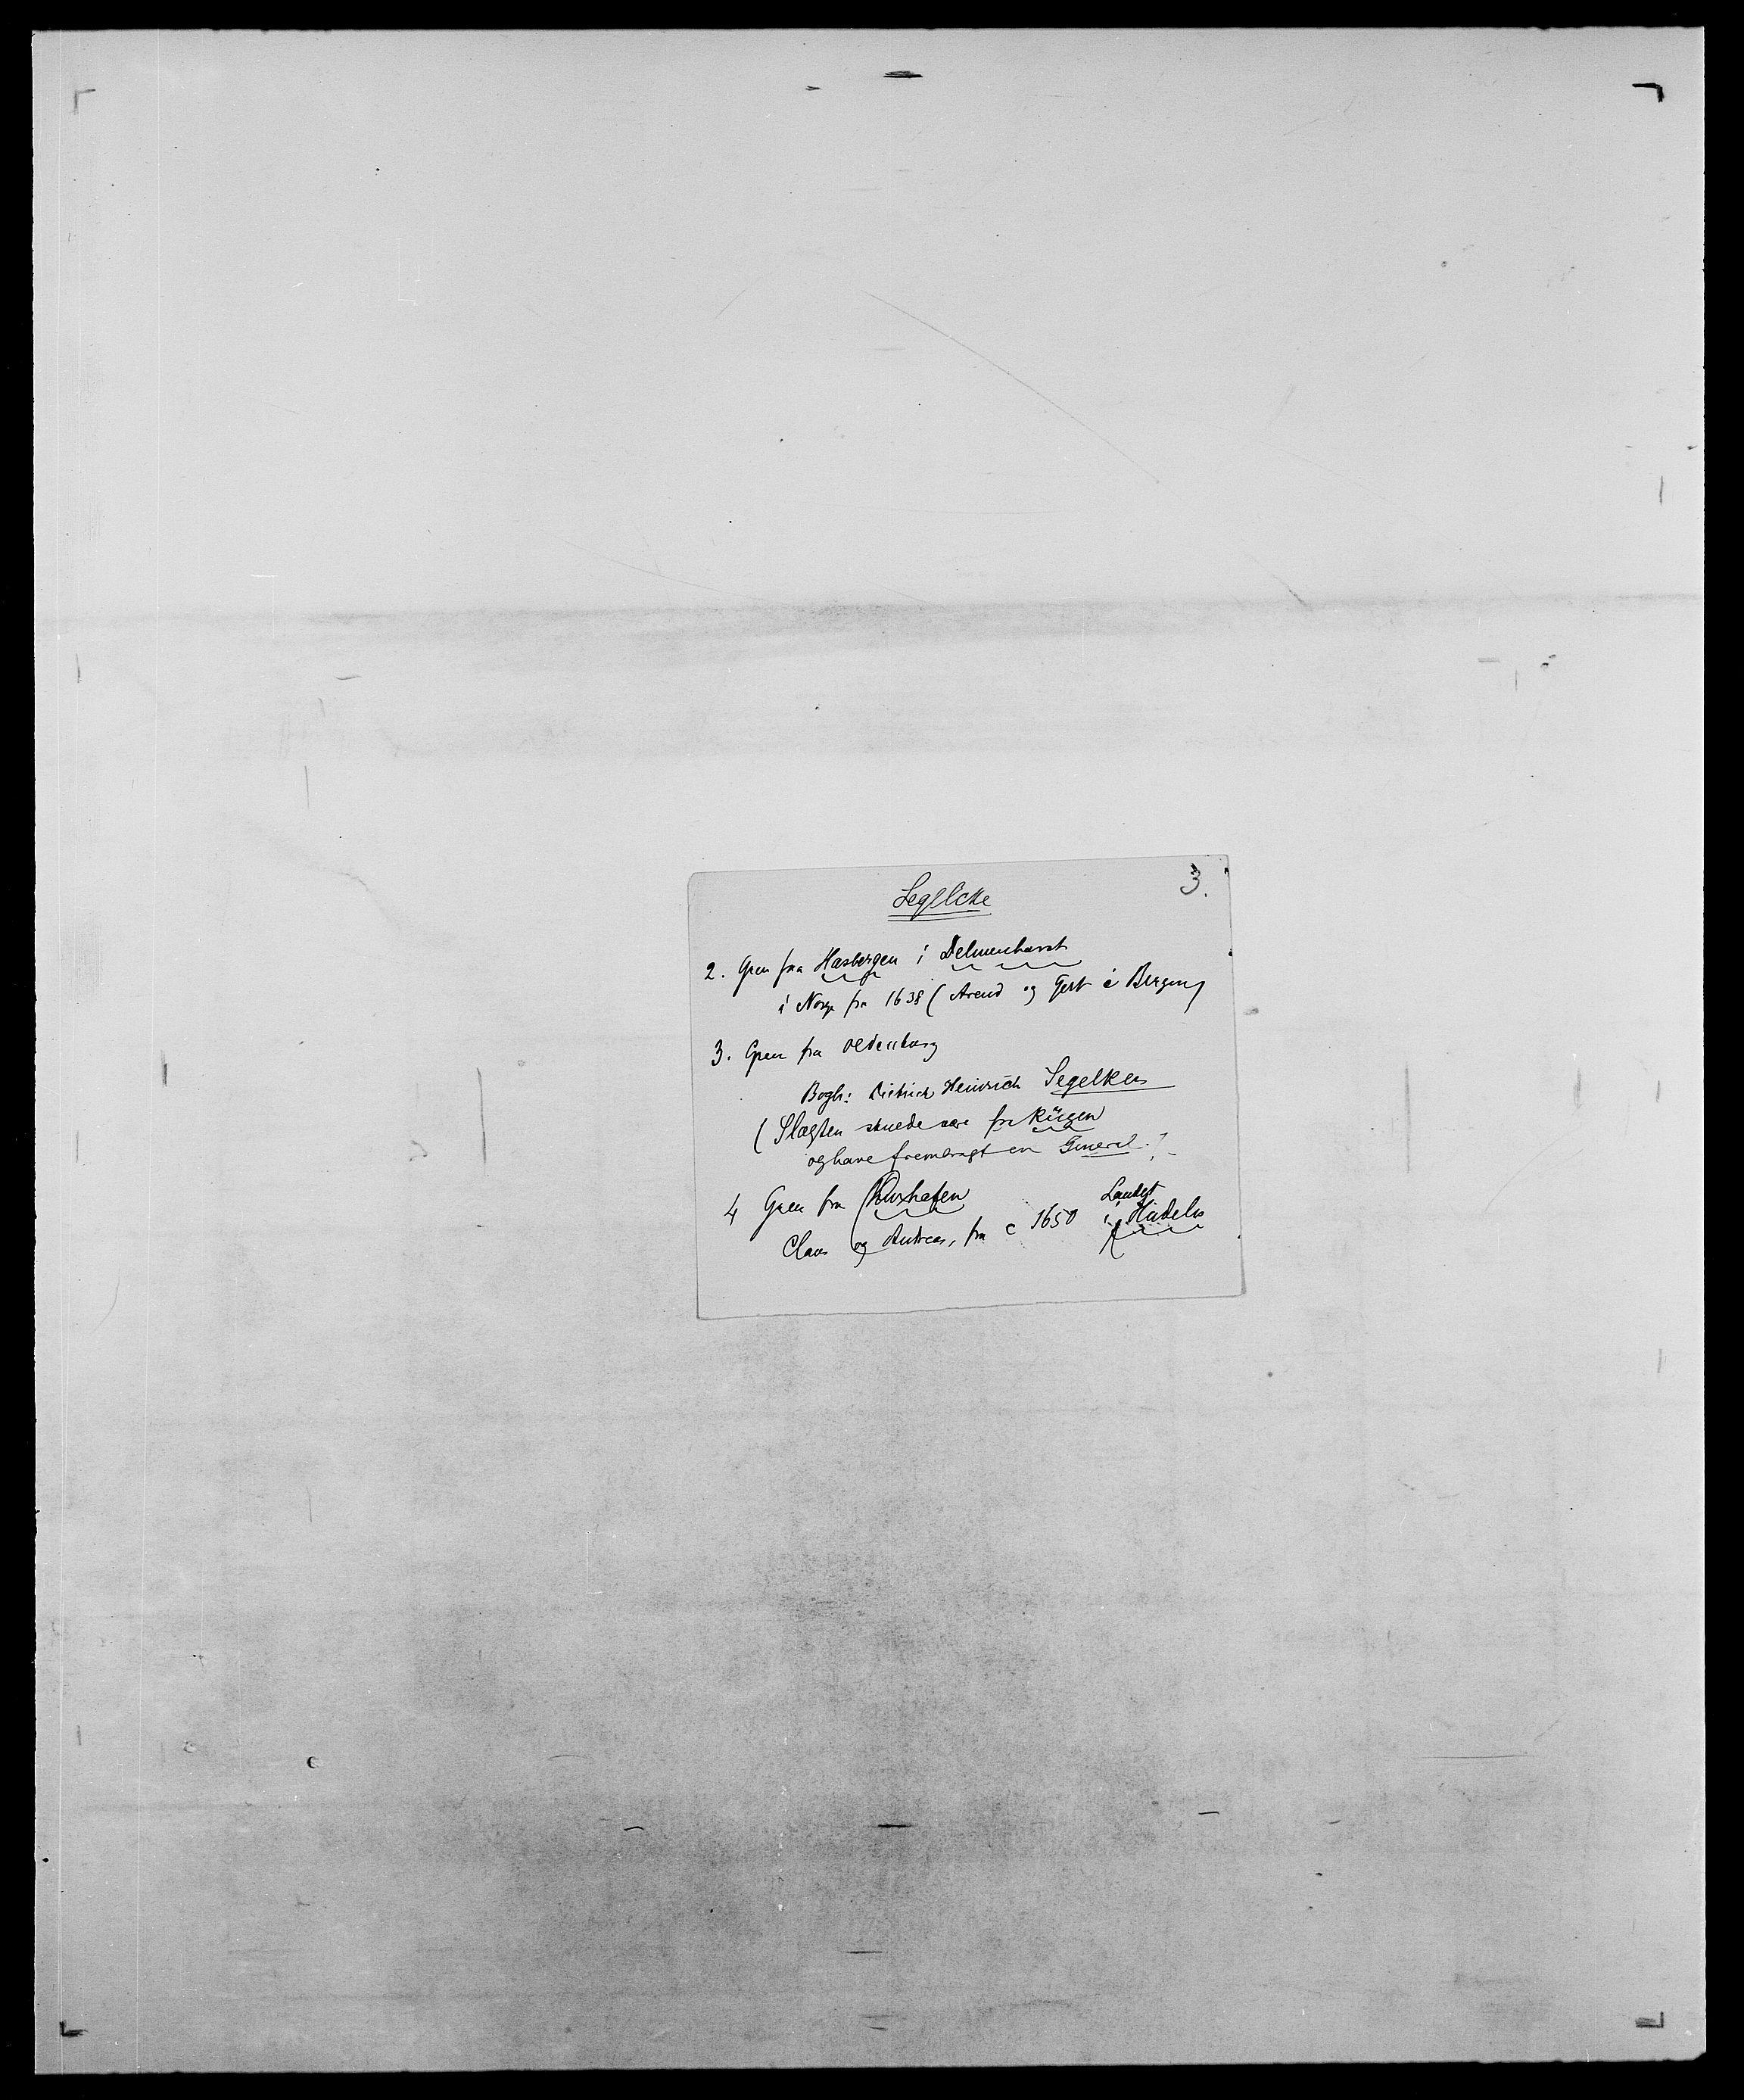 3.
Segelcke
2. Gren fra Hasbergen i Delmenhorst
i Norge fra 1638 (Arend og Gert i Bergen)
3. Gren fra Oldenburg
Bogh: Dietrich Heinrich Segelken
(Slægten skuede være fra Rügen
og have frembragt en General.?
4 Gren fra Kuxhafen
Claus og Andreas, fra c 1650 i Landet Hadeln